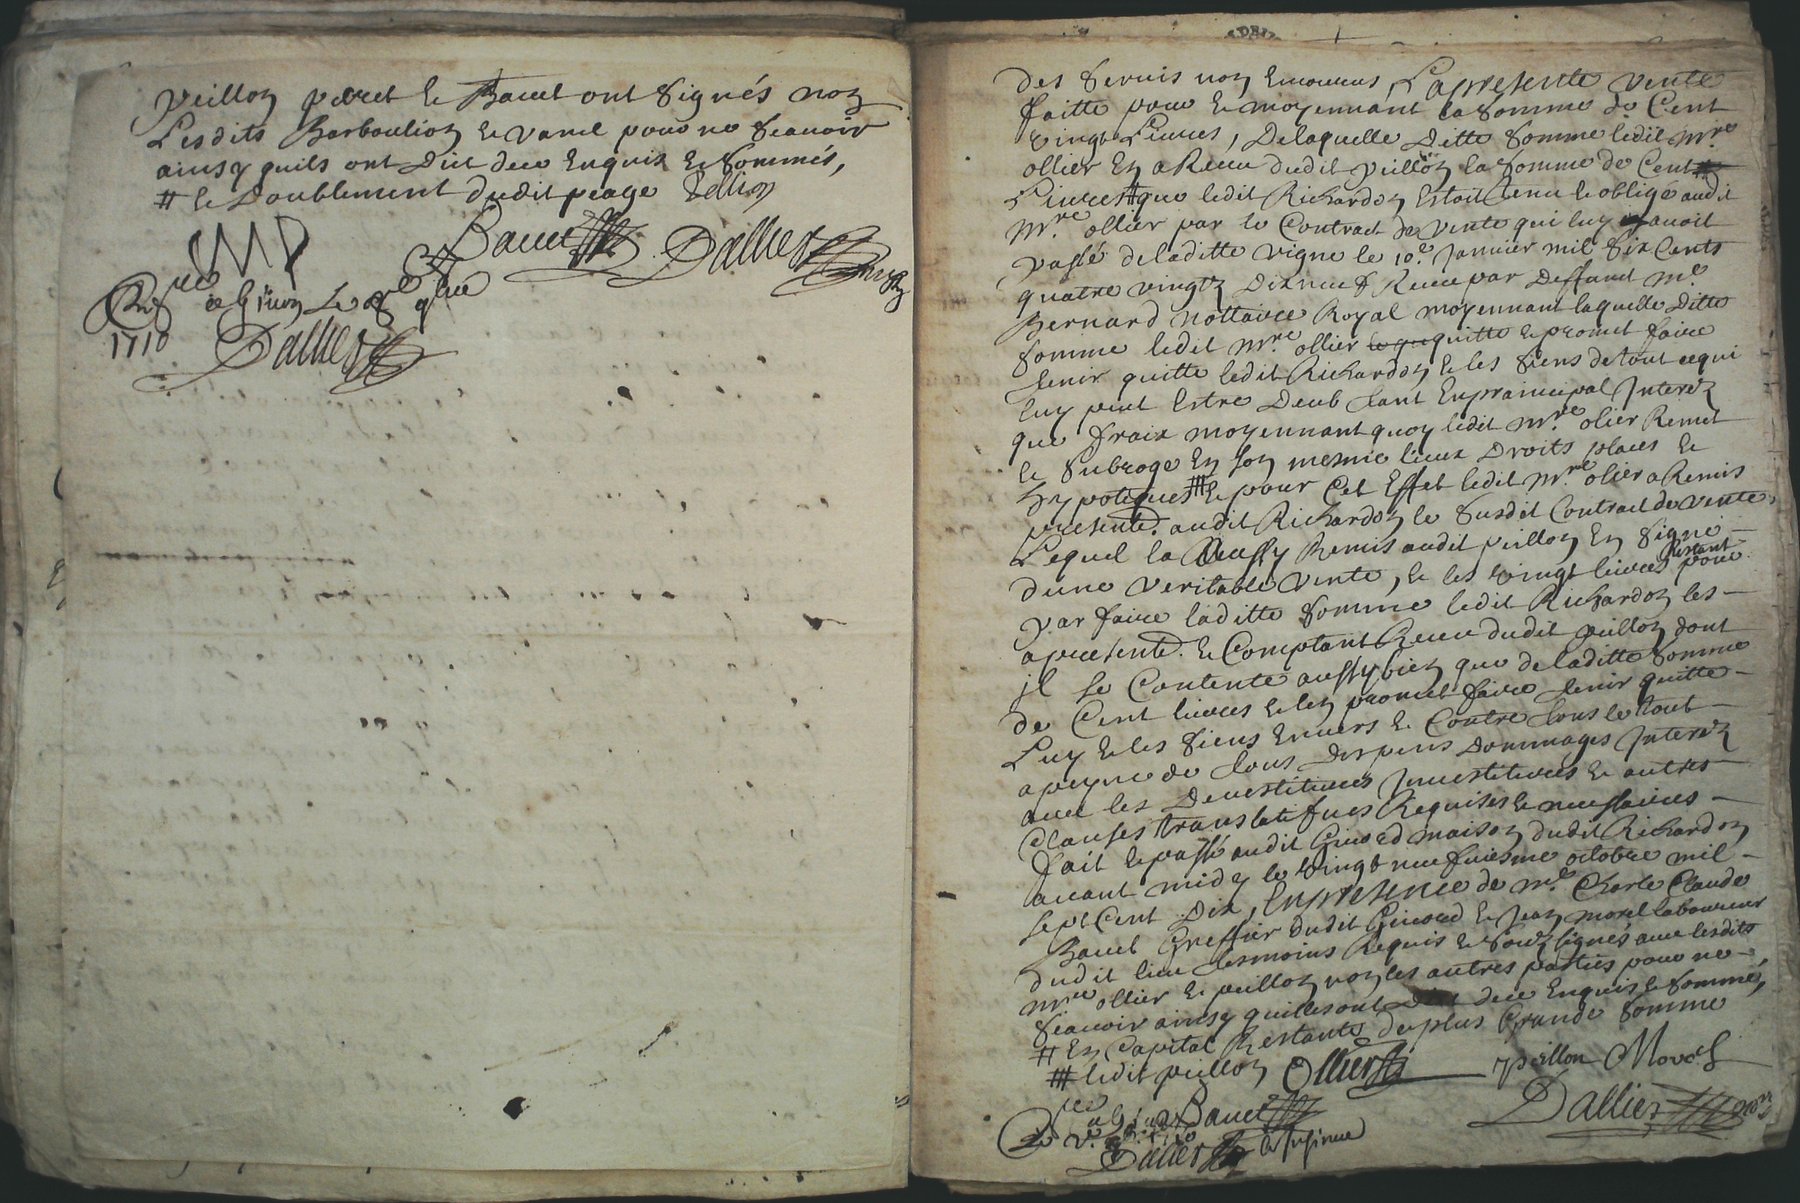 peillon peiret et Baud ont signés non
Lesdits Barboulion et vand pour ne sçauoir
ainsy quils ont Dict dece Enquis et sommés,
# le Doublement dudit peage peillon
MP
Baud Dallier
à Giuors Le
1710 Dallier
des seruis non Encourus, La presente vente
faitte pour et moyennant la somme de Cent
vingt Liures, De laquelle Ditte somme ledit Mre
ollier En a Receu dudit peillon la somme de Cent
Liures # que ledit Richardon Estoit tenu et obligé audit
Mre ollier par le Contract de vente qui luy auoit
passé de laditte vigne le 10e Janvier mil six Cents
quatre vingtz Dix neuf Receu par Deffunt Me
Bernard Nottaire Royal moyennant laquelle Ditte
somme ledit Mre ollier quitte et promet faire
tenir quitte ledit Richardon et les siens de tout ce qui
luy peut Estre Deub tant En principal Interetz
que fraix moyennant quoy ledit Mre olier Remet
et subroge En son mesme lieux Droits places et
hypoteques ## et pour Cet Effet ledit Mre olier a Remis
presentt. audit Richardon le susdit Contract de vente,
Lequel la Aussy Remis audit peillon En signe
dune veritable vente, et les vingt liures Restant pour
par faire laditte somme ledit Richardon les
a presentt. et Comptant Receu dudit peillon dont
il se Contente aussy bien que de laditte somme
de Cent liures et len promet faire tenir quitte
Luy et les siens Enuers et Contre tous le tout
a peyne de tous Despens Dommages Interetz
auec les Deuestitures Inuestitures et autres
Clauses translatifues Requises et necessaires
fait et passé audit Giuord maison dudit Richardon
auant midy le vingt neufuiesme octobre mil
sept Cent Dix, En presence de Me Charle Claude
Baud Greffier dudit Giuord et Jean morel laboureur
dudit lieu tesmoins Requis et soubsignés auec lesdits
Mre ollier et peillon non les autres parties pour ne
sçauoir ainsy quilles ont Dict dece Enquis et sommés,
# En Capital Restants de plus Grande somme
## ledit peillon Ollier peillon Morel
Baud Dallier
1710
Dallier